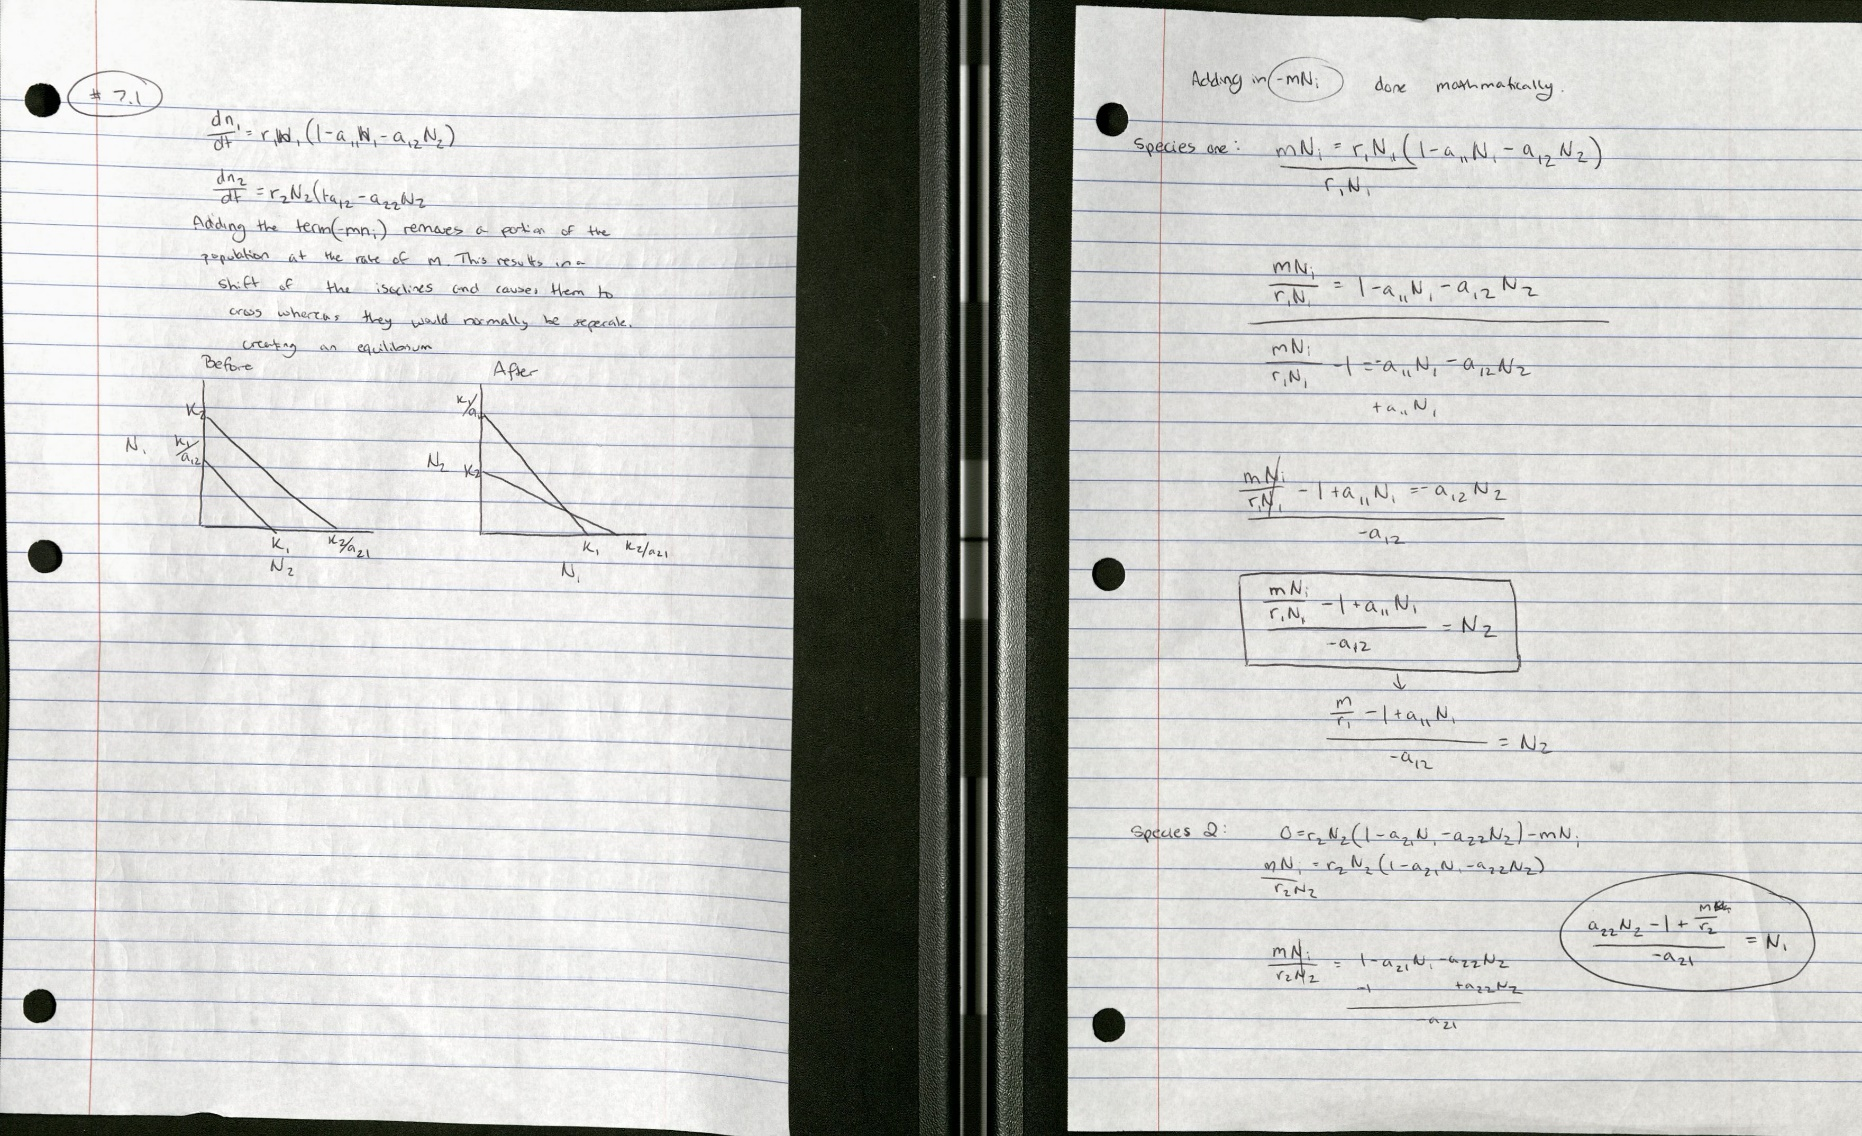 # 7.1
dn₁/dt = r₁N₁(1-a₁₁N₁-a₁₂N₂)
dn₂/dt = r₂N₂(1-a₁₂-a₂₂N₂
Adding the term(-mnᵢ) removes a portion of the
population at the rate of m. This results in a
shift of the isoclines and causes them to
cross whereas they would normally be seperate.
creating an equilibrium
Before
K₂
N₁
K₁/a₁₂
K₁
K₂/a₂₁
N₂
After
K₁/a₁₂
N₂
K₂
K₁
K₂/a₂₁
N₁
Adding in -mNᵢ done mathmatically.
Species one: mNᵢ = r₁N₁(1-a₁₁N₁-a₁₂N₂)
r₁N₁
mNᵢ/r₁N₁ = 1-a₁₁N₁-a₁₂N₂
mNᵢ/r₁N₁ -1 = -a₁₁N₁-a₁₂N₂
+a₁₁N₁
mNᵢ/r₁N₁ -1+a₁₁N₁ = -a₁₂N₂
-a₁₂
mNᵢ/r₁N₁ -1+a₁₁N₁
= N₂
-a₁₂
↓
m/r₁ -1+a₁₁N₁
= N₂
-a₁₂
Species 2: 0=r₂N₂(1-a₂₁N₁-a₂₂N₂)-mNᵢ
mNᵢ = r₂N₂(1-a₂₁N₁-a₂₂N₂)
r₂N₂
mNᵢ/r₂N₂ = 1-a₂₁N₁-a₂₂N₂
-1 +a₂₂N₂
-a₂₁
a₂₂N₂-1+m/r₂
= N₁
-a₂₁